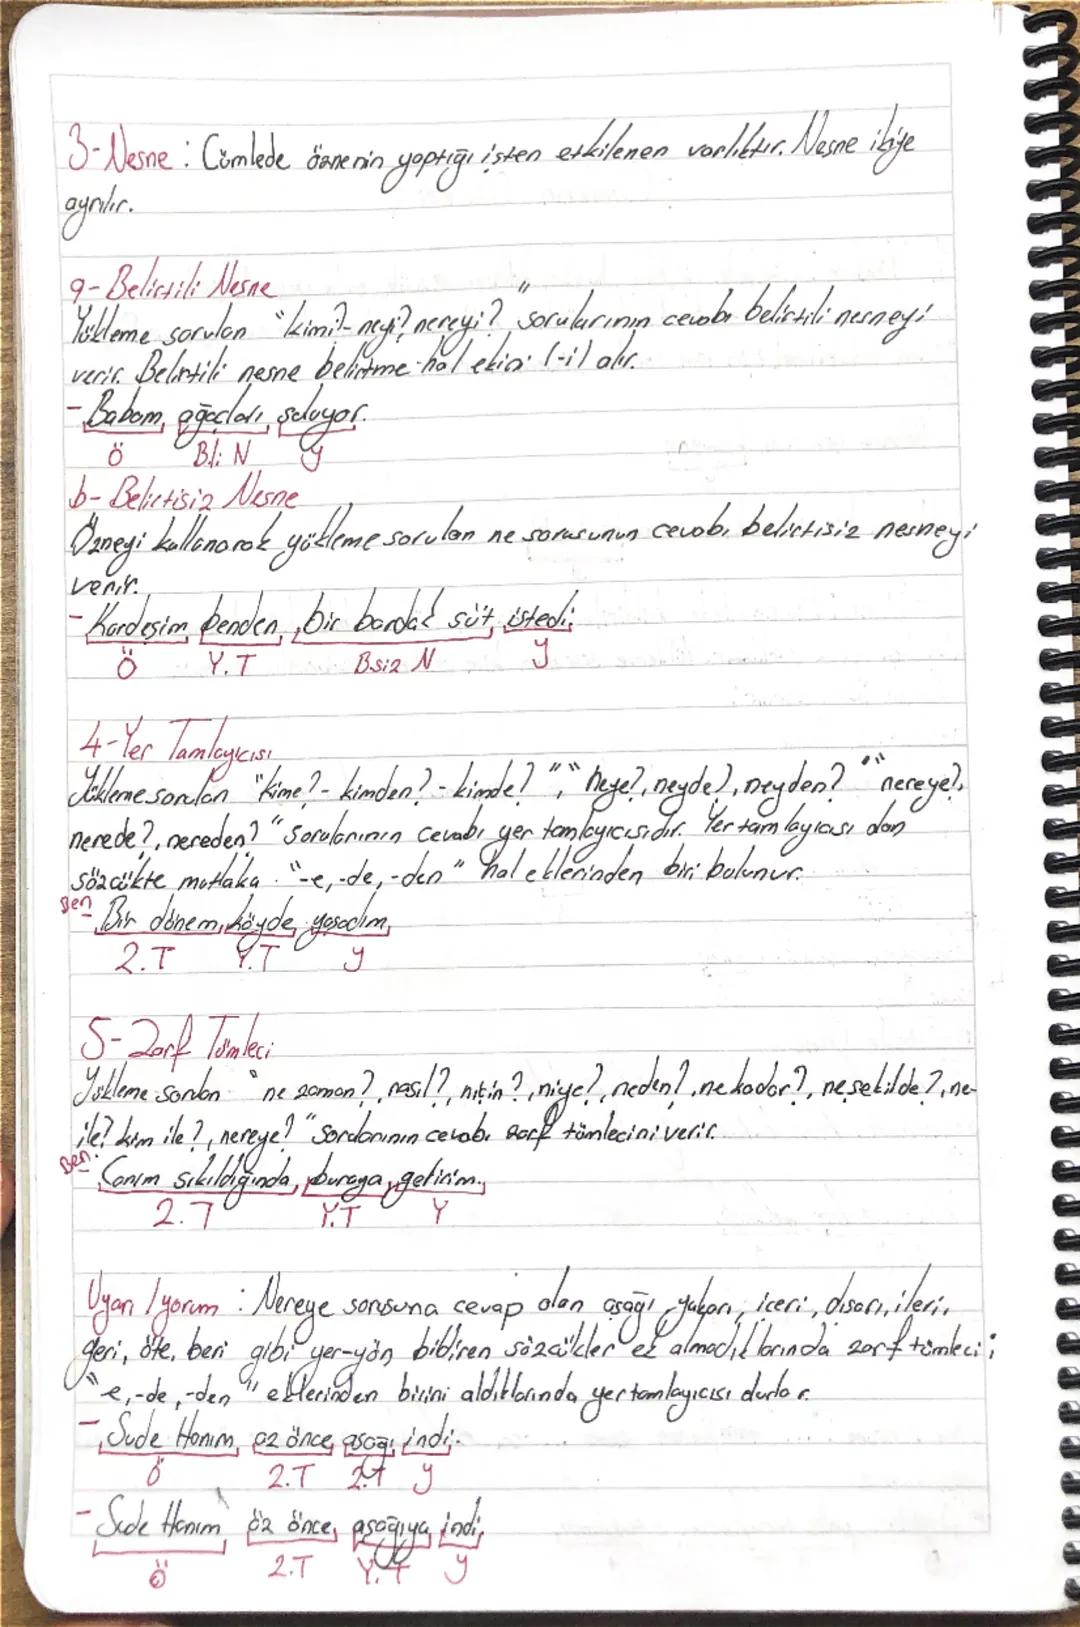 3-Nesne : Cümlede öznenin yaptığı işten etkilenen varlıktır. Nesne ikiye
ayrılır.
a- Belirtili Nesne
Yükleme sorulan "kimi?- neyi?, nereyi?" sorularının cevabı belirtili nesneyi
verir. Belirtili nesne belirtme hal ekini (-i) alır.
- Babam ağaçları suluyor.
Ö Bli N Y
b- Belirtisiz Nesne
Özneyi kullanarak yükleme sorulan ne sorusunun cevabı belirtisiz nesneyi
verir.
- Kardeşim benden bir bardak süt istedi.
Ö Y.T B.siz N Y
4-Yer Tamlayıcısı
Yükleme sorulan "kime?- kimden? - kimde?", "neye?, neyde?, neyden?" "nereye?,
nerede?, nereden?" sorularının cevabı yer tamlayıcısıdır. Yer tamlayıcısı olan
sözcükte mutlaka "-e, -de, -den" hal eklerinden biri bulunur.
Ben
- Bir dönem köyde yaşadım.
Z.T Y.T Y
5-Zarf Tümleci
Yükleme sorulan "ne zaman?, nasıl?, niçin?, niye?, neden?, ne kadar?, ne şekilde?, ne-
ile? kim ile?, nereye?" sorularının cevabı zarf tümlecini verir.
Ben
- Canım sıkıldığında buraya gelirim.
Z.T Y.T Y
Uyarı / yorum : Nereye sorusuna cevap olan aşağı, yukarı, içeri, dışarı, ileri,
geri, öte, beri gibi yer-yön bildiren sözcükler ek almadıklarında zarf tümleci;
"e, -de, -den" eklerinden birini aldıklarında yer tamlayıcısı olurlar.
- Sude Hanım az önce aşağı indi.
Ö Z.T Z.T Y
- Sude Hanım öz önce aşağıya indi.
Ö Z.T Y.T Y